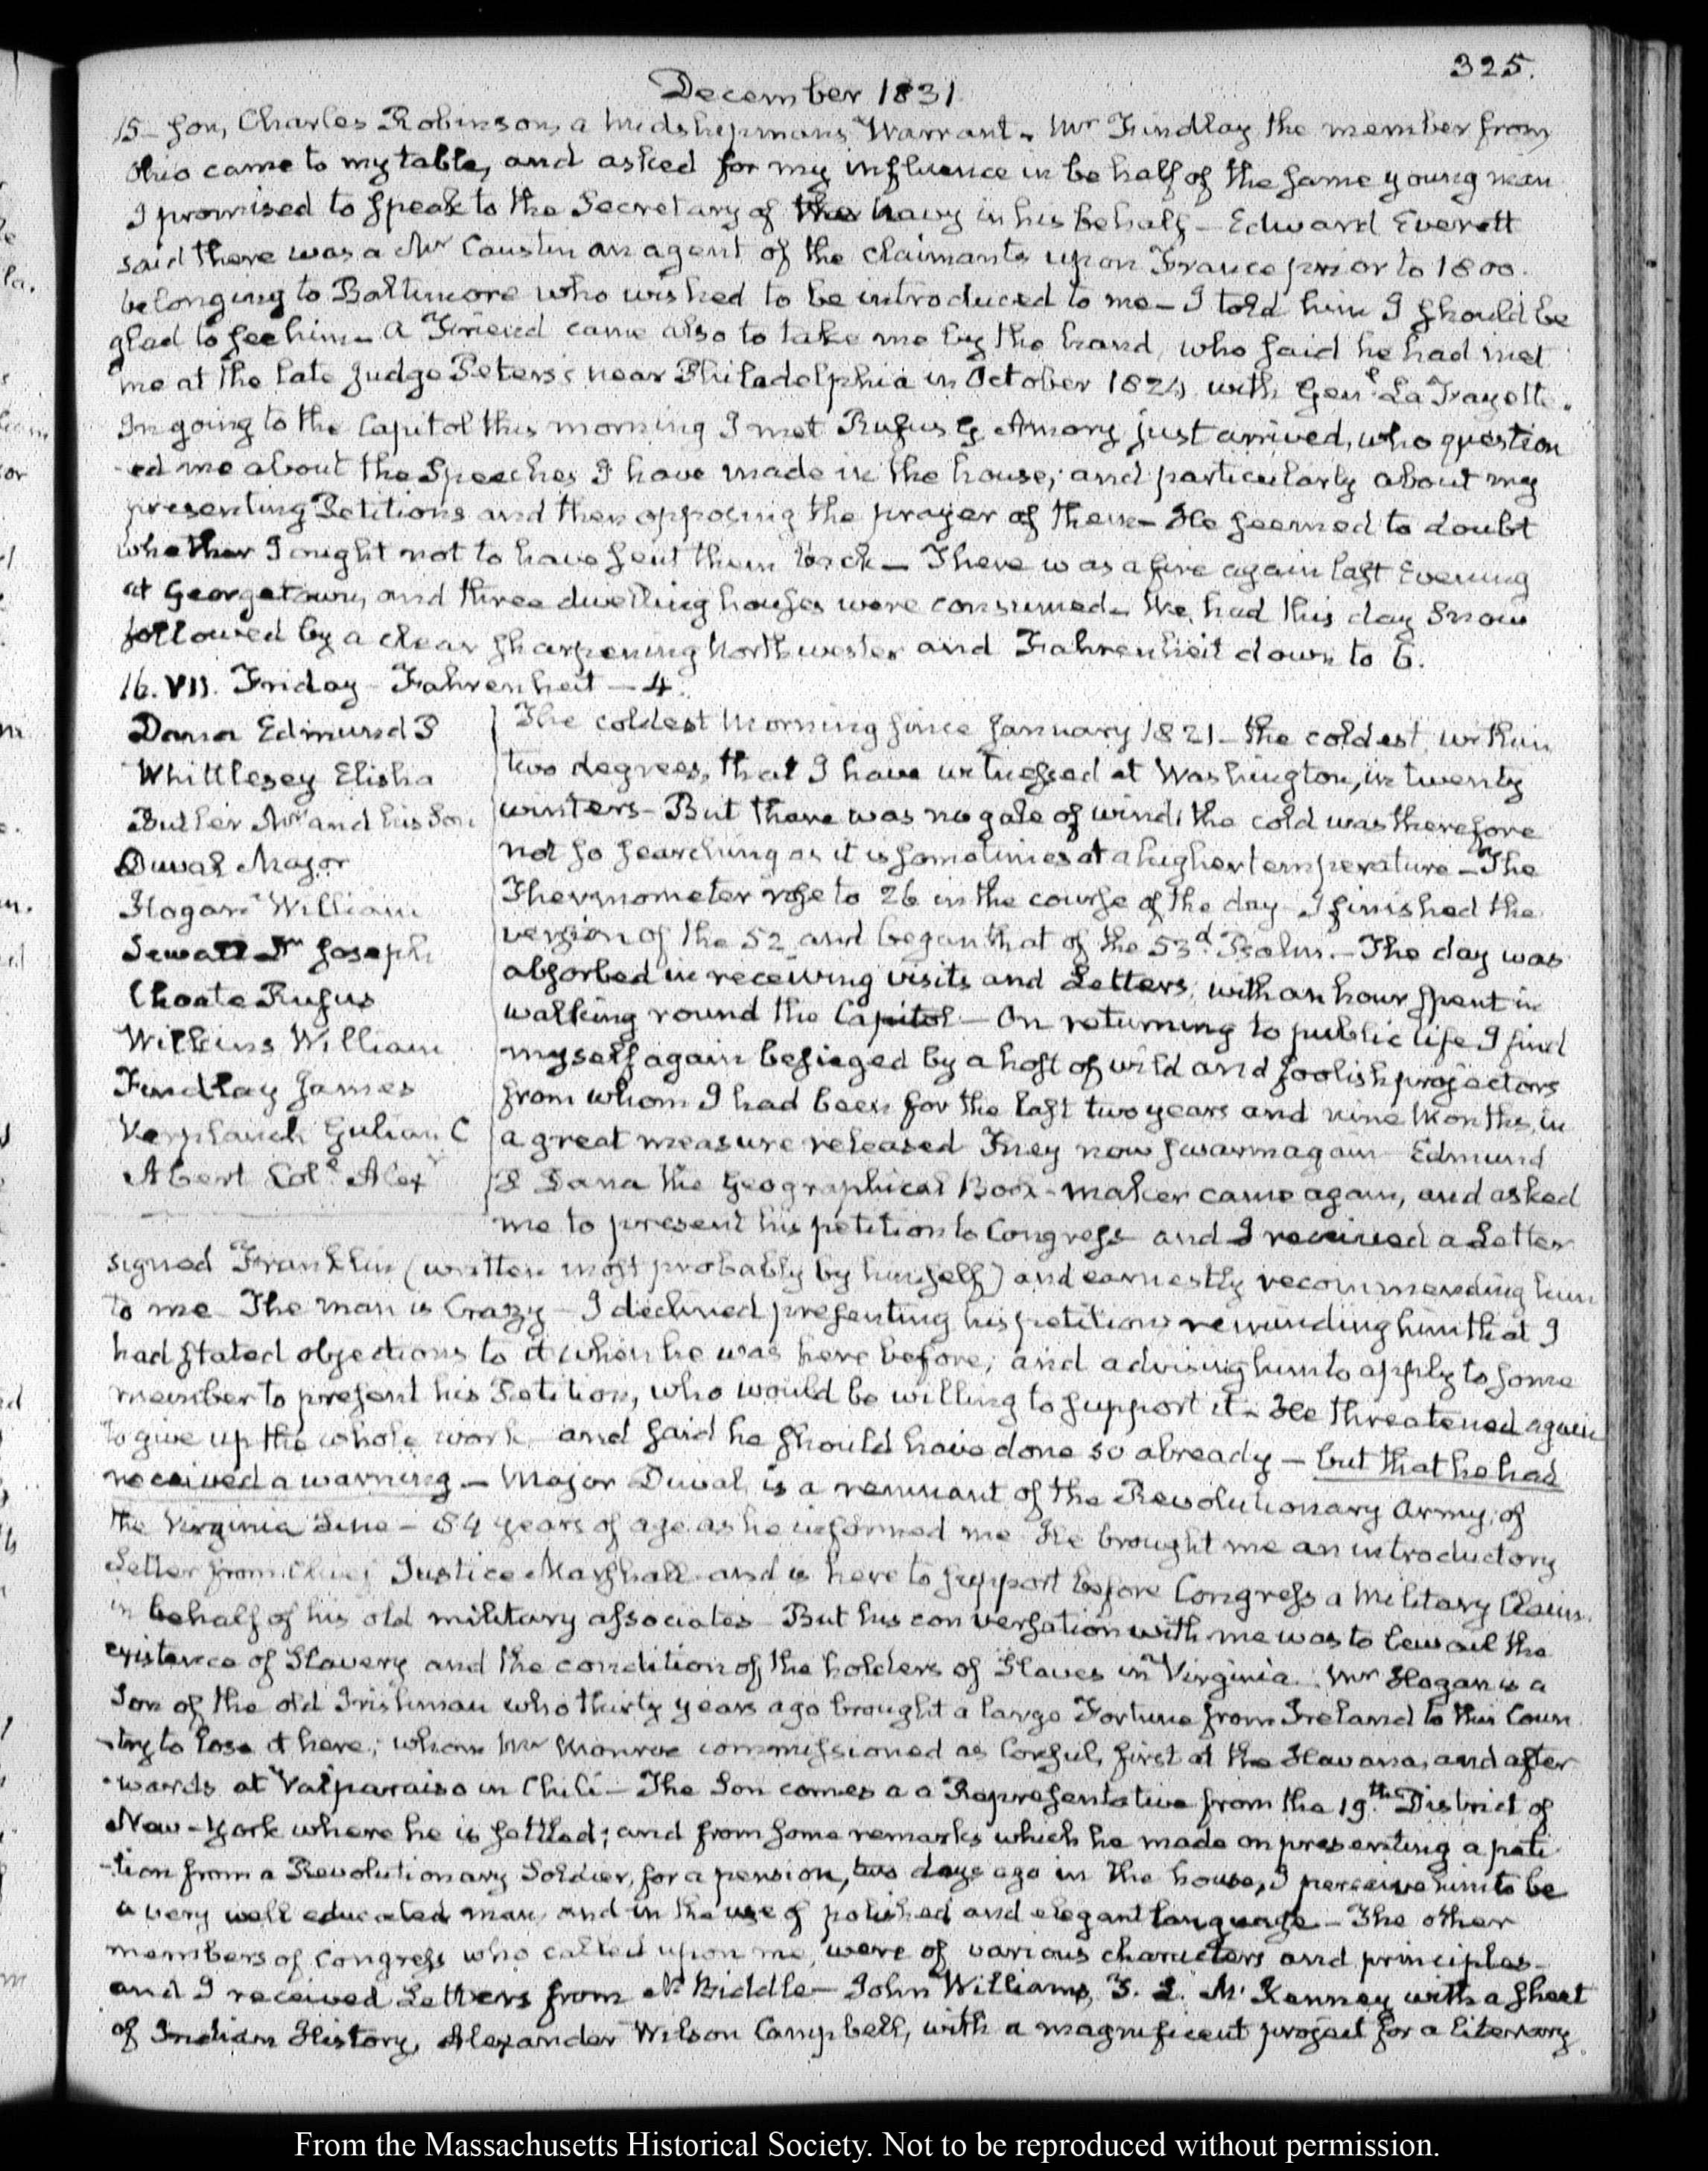 325.
December 1831.
15– son, Charles Robinson, a Midshipman's Warrant. Mr Findlay the member from
Ohio came to my table, and asked for my influence in behalf of the same young man
I promised to speak to the Secretary of the Navy in his behalf – Edward Everett
said there was a Mr Causten an agent of the claimants upon France prior to 1800.
belonging to Baltimore who wished to be introduced to me – I told him I should be
glad to see him – A Friend came also to take me by the hand, who said he had met
me at the late Judge Peters's near Philadelphia in October 1824 with Genl La Fayette.
In going to the Capitol this morning I met Rufus G. Amory just arrived, who question
ed me about the Speeches I have made in the house; and particularly about my
presenting Petitions and then opposing the prayer of them – He seemed to doubt
whether I ought not to have sent them back – There was a fire again last Evening
at Georgetown, and three dwelling houses were consumed – We had this day Snow
followed by a clear sharpening Northwester and Fahrenheit down to 6.
16. VII. Friday – Fahrenheit – 4.
Dana Edmund P
Whittlesey Elisha
Butler Mr and his Son
Duval Major
Hogan William
Sewall Dr Joseph
Choate Rufus
Wilkins William
Findlay James
Verplanck Gulian C
Abert Coll Alexr
The coldest Morning since January 1821 – the coldest, within
two degrees, that I have witnessed at Washington, in twenty
winters – But there was no gale of wind; the cold was therefore
not so searching as it is sometimes at a higher temperature – The
Thermometer rose to 26 in the course of the day – I finished the
version of the 52. and began that of the 53d Psalm. – The day was
absorbed in receiving visits and Letters, with an hour spent in
walking round the Capitol – On returning to public life I find
myself again besieged by a host of wild and foolish projectors
from whom I had been for the last two years and nine Months, in
a great measure released They now swarm again Edmund
P Dana the Geographical Book-maker came again, and asked
me to present his petition to Congress and I received a Letter
signed Franklin (written most probably by himself) and earnestly recommending him
to me The man is Crazy – I declined presenting his petition, reminding him that I
had stated objections to it when he was here before; and advising him to apply to some
member to present his Petition, who would be willing to support it – He threatened again
to give up the whole work, and said he should have done so already – but that he had
received a warning – Major Duval is a remnant of the Revolutionary Army, of
the Virginia Line – 84 years of age as he informed me He brought me an introductory
Letter from Chief Justice Marshall and is here to support before Congress a Military Claim
in behalf of his old military associates – But his conversation with me was to bewail the
existence of Slavery and the condition of the holders of Slaves in Virginia. Mr Hogan is a
Son of the old Irishman who thirty years ago brought a large Fortune from Ireland to this Coun
-try to lose it here; whom Mr Monroe commissioned as Consul, first at the Havana, and after
-wards at Valparaiso in Chili – The Son comes a a Representative from the 19th District of
New-York where he is settled; and from some remarks which he made on presenting a peti
-tion from a Revolutionary Soldier, for a pension, two days ago in the house, I perceive him to be
a very well educated man, and in the use of polished and elegant language – The other
members of Congress who called upon me, were of various characters and principles –
and I received Letters from N. Biddle – John Williams, T. L. McKenney with a sheet
of Indian History, Alexander Wilson Campbell, with a magnificent project for a literary
From the Massachusetts Historical Society. Not to be reproduced without permission.